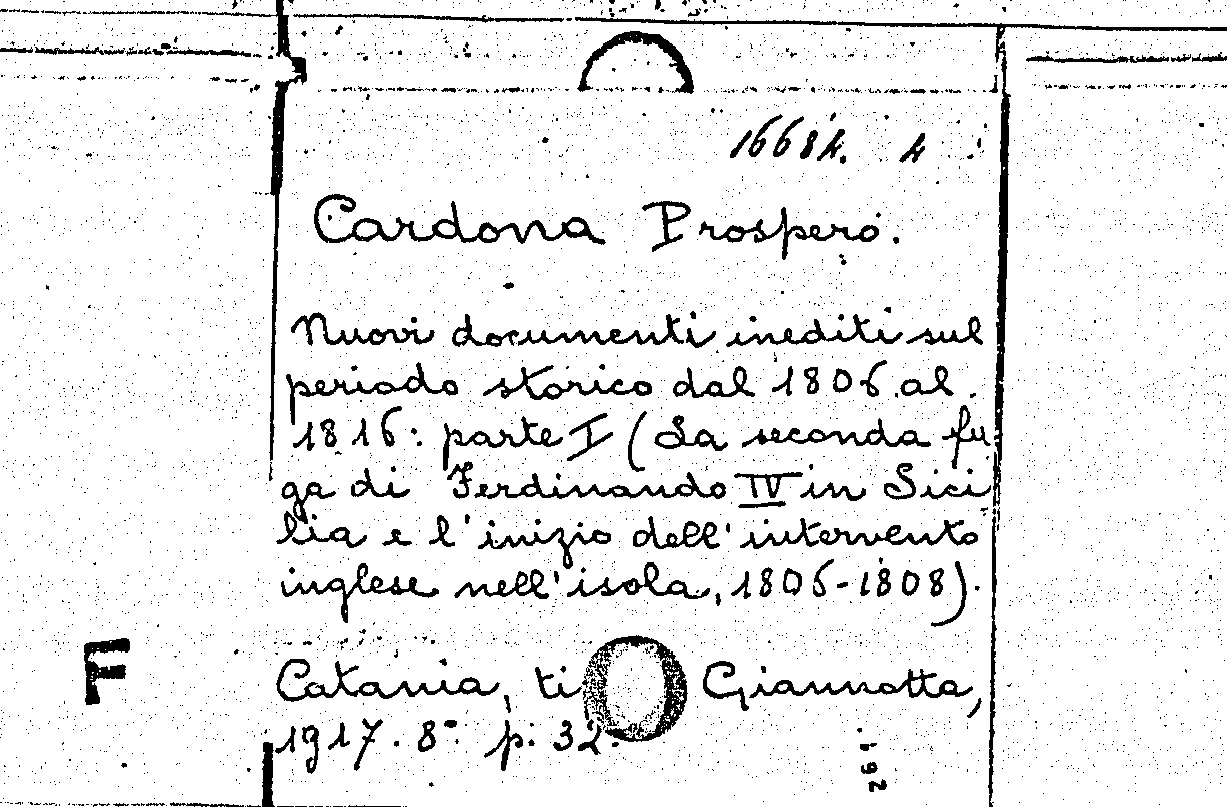 16684. A
Cardona Prospero.
Nuovi documenti inediti sul
periodo storico dal 1806 al
1816: parte I (La seconda fu
ga di Ferdinando IV in Sici
lia e l'inizio dell'intervento
inglese nell'isola, 1806-1808).
F
Catania, ti Giannotta,
1917. 8° p. 32.
192